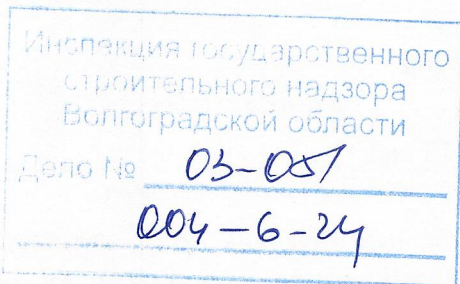 Инспекция государственного
строительного надзора
Волгоградской области
Дело № 03-051
004-6-24